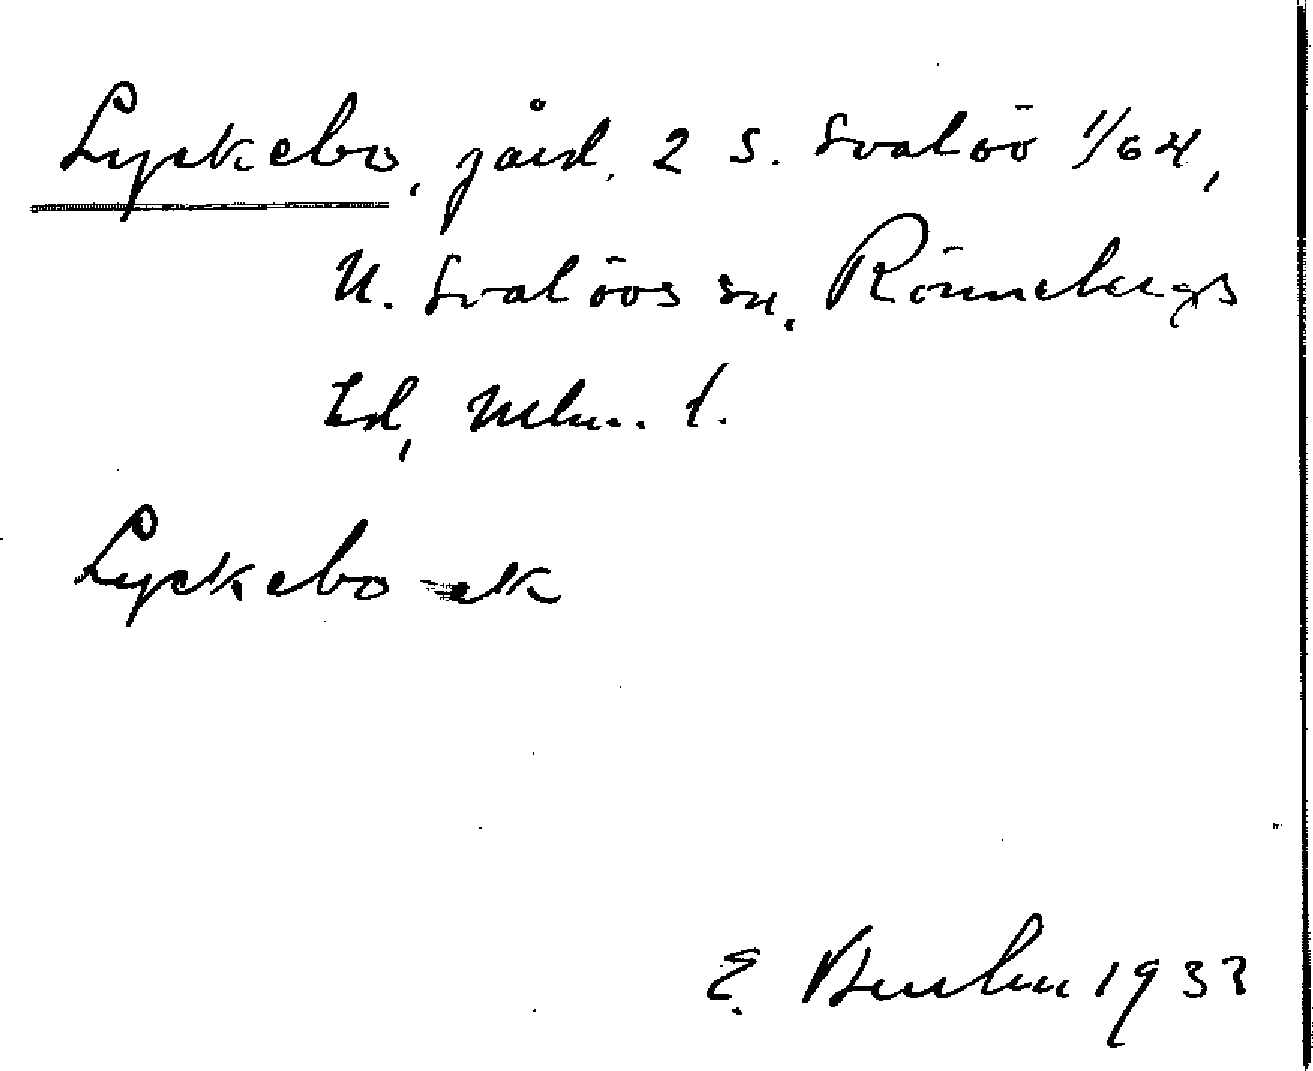 Lyckebo, gård, 2 S. Svalöv 1/64,
N. Svalövs sn, Rönnebergs
hd, Mlm. l.
Lyckebo
E. 1933